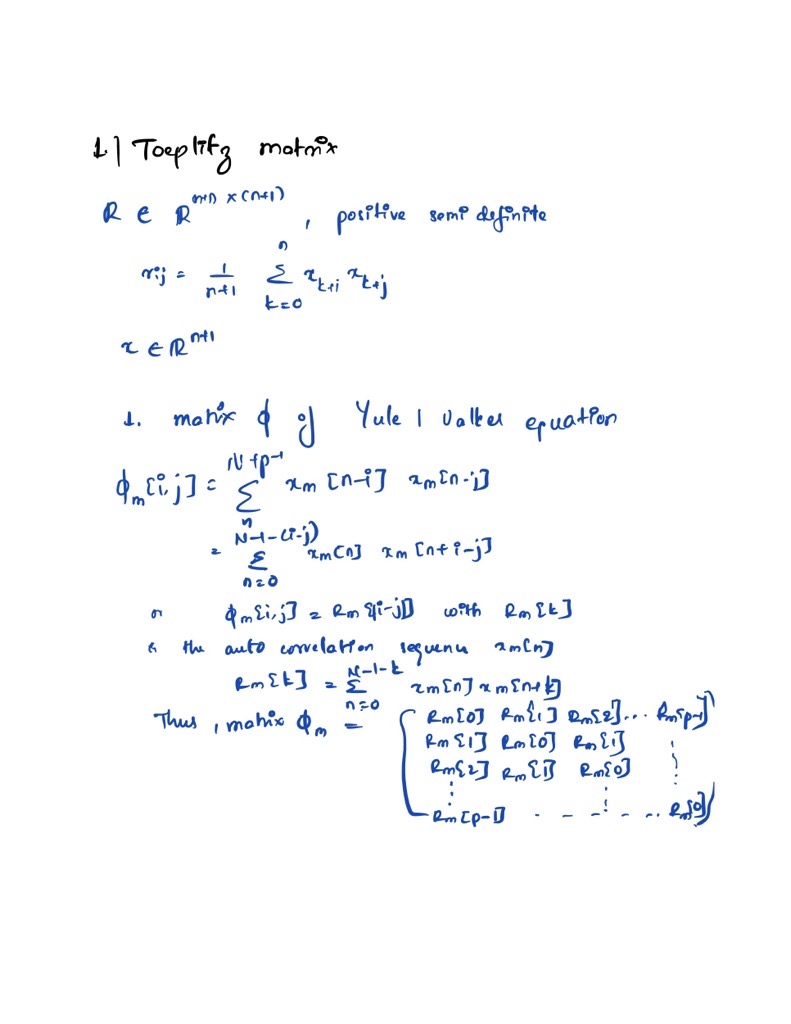 1.) Toeplitz matrix
R ∈ ℝ^(n+1) × (n+1) , positive semi definite
rij = 1/(n+1) Σ_{k=0}^{n} x_{k+i} x_{k+j}
x ∈ ℝ^{n+1}
1. matrix ϕ of Yule | Walker equation
ϕm[i,j] = Σ_{n}^{N+p-1} xm[n-i] xm[n-j]
= Σ_{n=0}^{N-1-(i-j)} xm[n] xm[n+i-j]
or ϕm[i,j] = Rm[|i-j|] with Rm[k]
is the auto correlation sequence xm[n]
Rm[k] = Σ_{n=0}^{N-1-k} xm[n] xm[n+k]
Thus, matrix ϕm = Rm[0] Rm[1] Rm[2] ... Rm[p-1]
Rm[1] Rm[0] Rm[1]
Rm[2] Rm[1] Rm[0]
Rm[p-1] - - - - .. Rm[0]